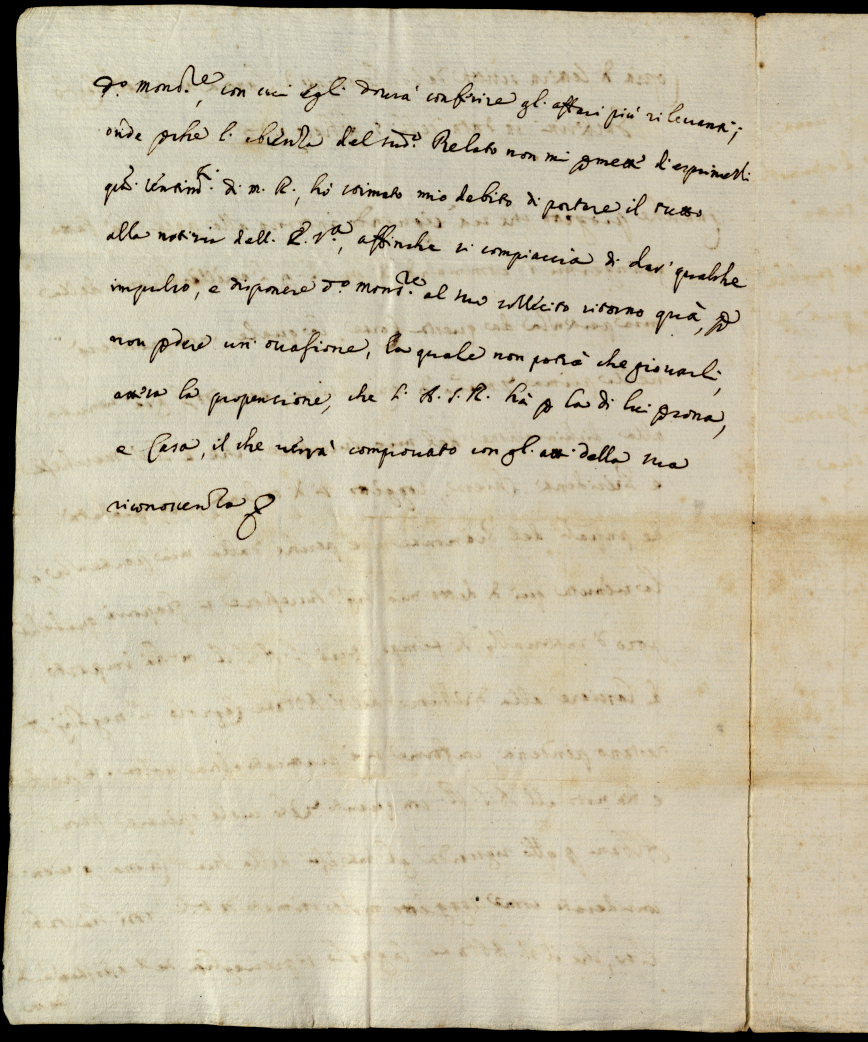 d.o mons.re, con cui egli dovrà conferire gl'affari più rilevanti;
onde perche l'absenza del sud.o Relato non mi pmette d'esprimerli
qti sentimti di m. R., hò stimato mio debito di portare il tutto
alla notizia dell'E. V.a, affinche si compiaccia di dar' qualche
impulso, e disponere d.o mons.re al suo sollécito ritorno quà, p
non pdere un'occasione, la quale non potrà che giovarli,
attesa la propensione, che S. A. S. R. hà p la di lui psona,
e Casa, il che verrà comprovato con gl'atti della sua
riconoscenza